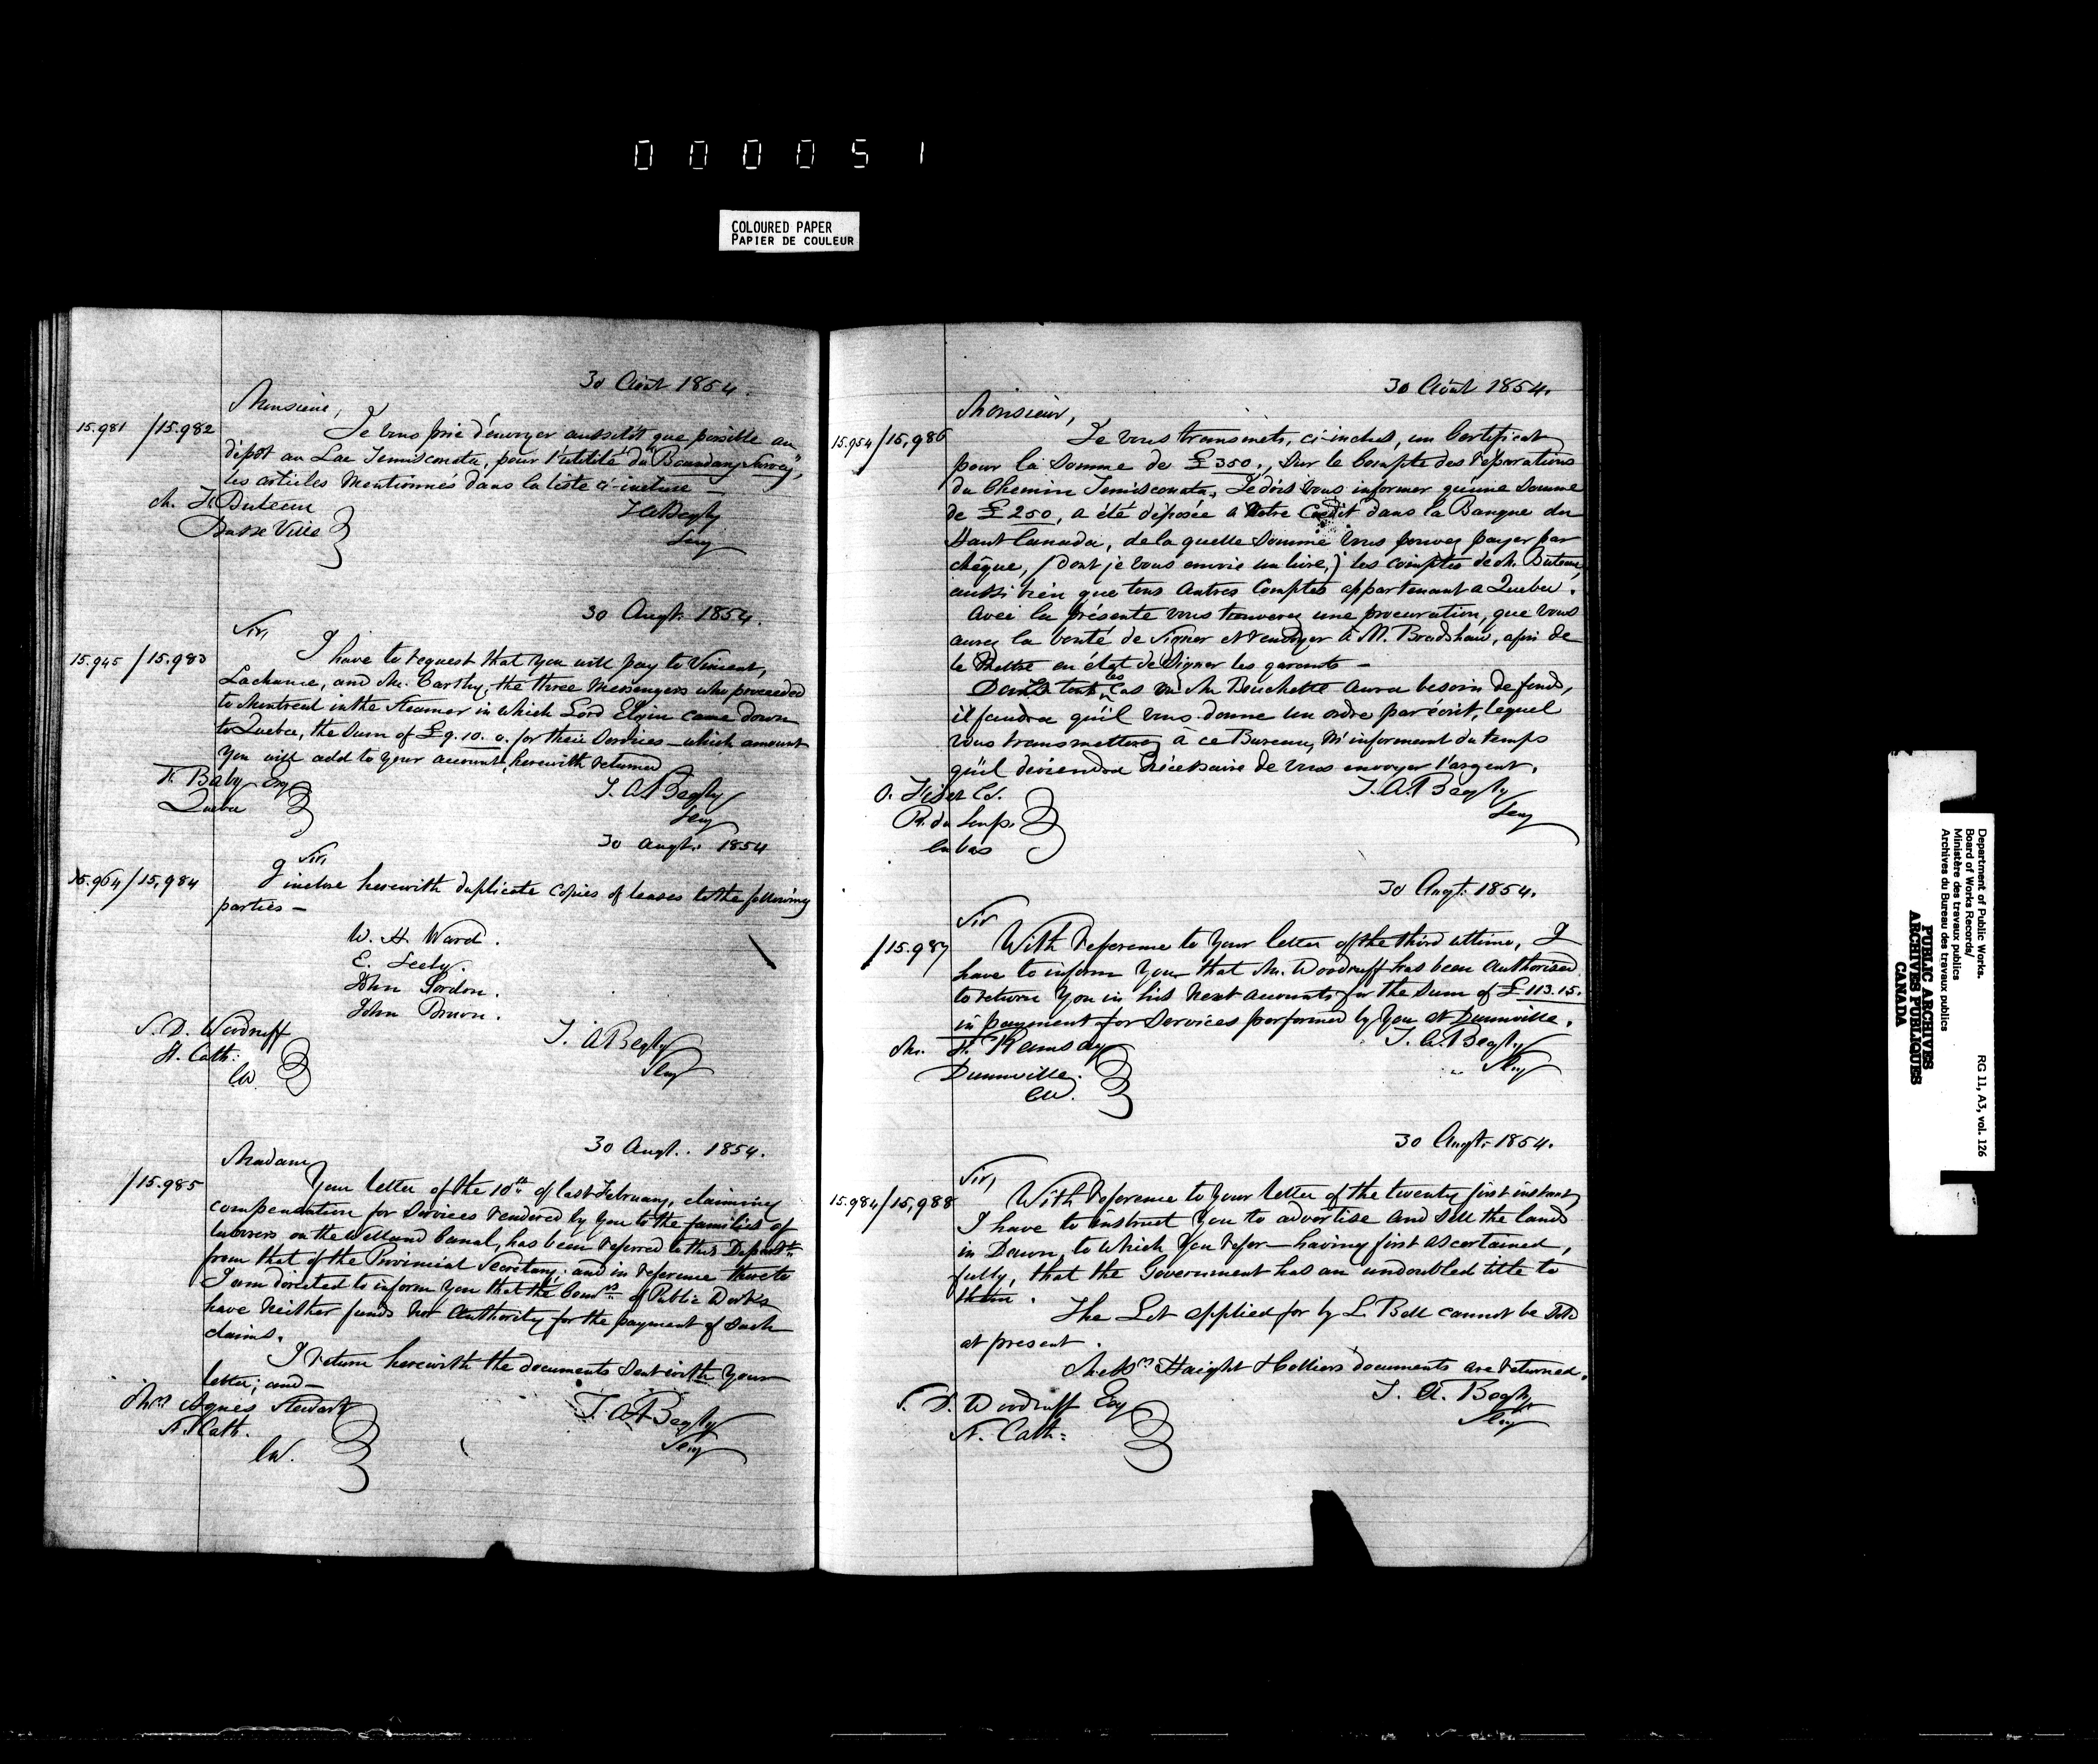 000051
COLOURED PAPER
PAPIER DE COULEUR
30 Août 1854.
Monsieur,
15.981 /15.982 Je vous prie d'envoyer aussitôt que possible au
dépôt au Lac Temisconata, pour l'utilité du "Boundary Survey",
les articles mentionnés dans la liste ci-incluse —
M. H. Buteau
Basse Ville
T A Begly
Secy
30 Augt. 1854.
Sir,
15.945 /15.983 I have to request that you will pay to Vincent,
Lachance, and Mc Carthy, the three Messengers who proceeded
to Montreal in the Steamer in which Lord Elgin came down
to Quebec, the Sum of £9.10.0. for their Services — which amount
you will add to your account, herewith returned
Baby Esq
Quebec
T. A Begly
Secy
30 Augt. 1854
Sir,
15.964/15,984 I inclose herewith duplicate copies of leases to the following
parties —
W. H. Ward.
E. Seely.
John Gordon.
John Brown.
S. D. Woodruff
St. Cath:
CW.
T. A Begly
Secy
30 Augt. 1854.
Madam,
/15.985 Your letter of the 10th of last February, claiming
compensation for Services rendered by you to the families of
laborers on the Welland Canal, has been referred to this Departt.
from that of the Provincial Secretary; and in reference thereto
I am directed to inform you that the Comrs. of Public Works
have neither funds nor Authority for the payment of such
claims.
I return herewith the documents sent with your
letter; and —
Mrs Agnes Stewart
St. Cath.
CW.
T. A Begly
Secy
30 Août 1854.
Monsieur,
15.954/15,986 Je vous transmets, ci-inclus, un Certificat
pour la Somme de £350., sur le Compte des réparations
du Chemin Temisconata. Je dois vous informer qu'une Somme
de £250, a été déposée à Votre Credit dans la Banque du
Haut Canada, de laquelle Somme vous pouvez payer par
chèque, (dont je vous envoie un livre,) les comptes de M. Buteau,
aussi bien que tous Autres Comptes appartenant a Quebec.
Avec la présente vous trouverez une procuration, que vous
aurez la bonté de Signer et renvoyer à M. Bradshaw, afin de
le Mettre en état de Signer les garants —
Dans tous les Cas où Mr Bouchette aura besoin de fonds,
il faudra qu'il vous donne un ordre par écrit, lequel
vous transmetterez à ce Bureau, M'informant du temps
qu'il deviendra nécessaire de vous envoyer l'argent.
R. du Loup.
en bas
T. A. Begly
Secy
30 Augt. 1854.
Sir
/15.987 With reference to your letter of the third ultimo, I
have to inform you that Mr. Woodruff has been Authorised
to return you in his next accounts for the Sum of £113.15.
in payment for Services performed by you at Dunnville.
Mr. H. Ramsay
Dunnville.
CW.
T. A. Begly
Secy
30 Augt. 1854.
Sir,
15.984/15,988 With reference to your letter of the twenty first instant,
I have to instruct you to advertise and sell the lands
in Dawn, to which you refer — having first ascertained,
fully, that the Government has an undoubted title to
them.
The Lot applied for by L. Bell cannot be sold
at present.
Messrs Haight & Colliers documents are returned.
S. D. Woodruff Esq
St. Cath:
T. A. Begly
Secy
Department of Public Works.
Board of Works Records/
Ministère des travaux publics
Archives du Bureau des travaux publics
RG 11, A3, vol. 126
PUBLIC ARCHIVES
ARCHIVES PUBLIQUES
CANADA